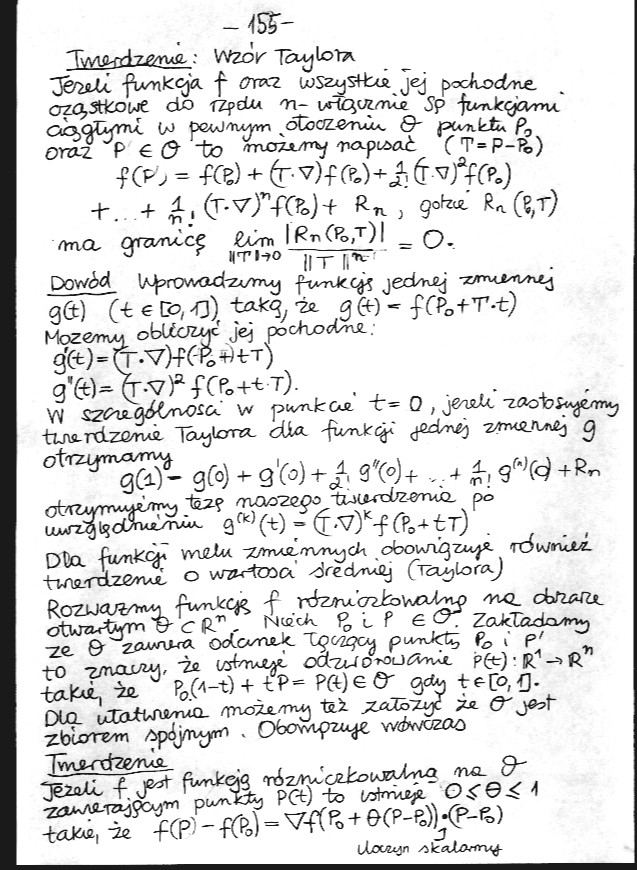 - 155 -
Twierdzenie: Wzór Taylora
Jeżeli funkcja f oraz wszystkie jej pochodne
cząstkowe do rzędu n-włącznie są funkcjami
ciągłymi w pewnym otoczeniu O punktu P₀
oraz P ∈ O to możemy napisać (T = P-P₀)
f(P) = f(P₀) + (T·∇)f(P₀) + 1/2! (T·∇)²f(P₀)
+ ... + 1/n! (T·∇)ⁿf(P₀) + Rₙ, gdzie Rₙ(P₀,T)
ma granicę lim ‖T‖→0 |Rₙ(P₀,T)| / ‖T‖ⁿ = 0.
Dowód Wprowadzimy funkcję jednej zmiennej
g(t) (t ∈ [0,1]) taką, że g(t) = f(P₀+T·t)
Możemy obliczyć jej pochodne:
g'(t) = (T·∇)f(P₀+tT)
g"(t) = (T·∇)² f(P₀+t·T).
W szczególności w punkcie t=0, jeżeli zastosujemy
twierdzenie Taylora dla funkcji jednej zmiennej g
otrzymamy
g(1) - g(0) + g'(0) + 1/2! g"(0) + ... + 1/n! g⁽ⁿ⁾(0) + Rₙ
otrzymujemy tezę naszego twierdzenia po
uwzględnieniu g⁽ᵏ⁾(t) = (T·∇)ᵏ f(P₀+tT)
Dla funkcji wielu zmiennych obowiązuje również
twierdzenie o wartości średniej (Taylora)
Rozważmy funkcję f różniczkowalną na obszarze
otwartym O ⊂ Rⁿ. Niech P₀ i P ∈ O. Zakładamy
że O zawiera odcinek łączący punkty P₀ i P
to znaczy, że istnieje odwzorowanie P(t): R¹ → Rⁿ
takie, że P₀(1-t) + tP = P(t) ∈ O gdy t ∈ [0,1].
Dla ułatwienia możemy też założyć że O jest
zbiorem spójnym. Obowiązuje wówczas
Twierdzenie
Jeżeli f jest funkcją różniczkowalną na O
zawierającym punkty P(t) to istnieje 0 ≤ θ ≤ 1
takie, że f(P) - f(P₀) = ∇f(P₀ + θ(P-P₀))·(P-P₀)
iloczyn skalarny